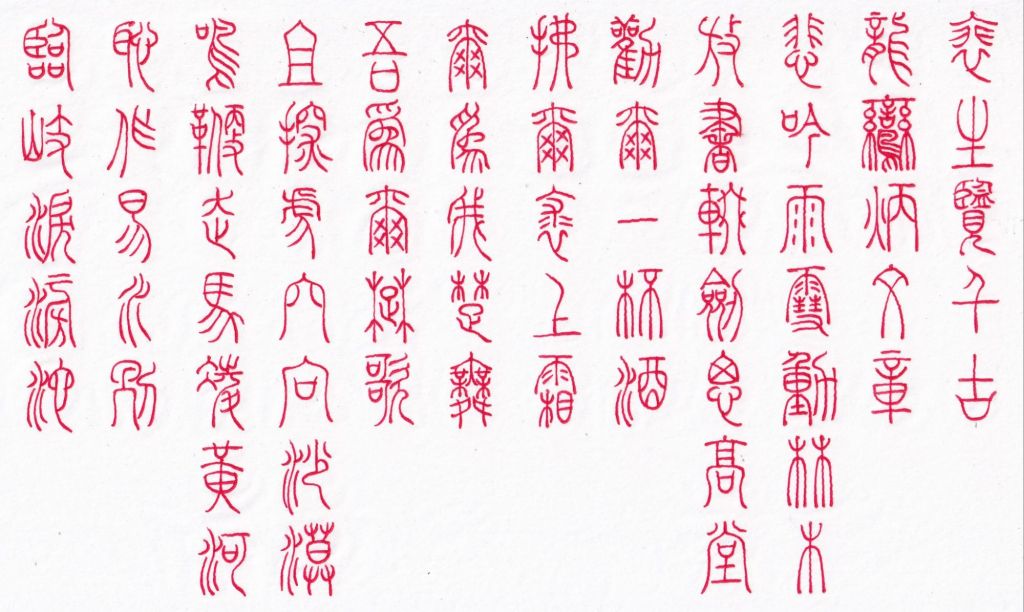 裴生覽千古
龍鸞炳文章
悲吟雨雪動林木
放書輟劍思高堂
勸爾一杯酒
拂爾裘上霜
爾為我楚舞
吾為爾楚歌
且探虎穴向沙漠
鳴鞭走馬凌黃河
恥作易水別
臨岐淚滂沱